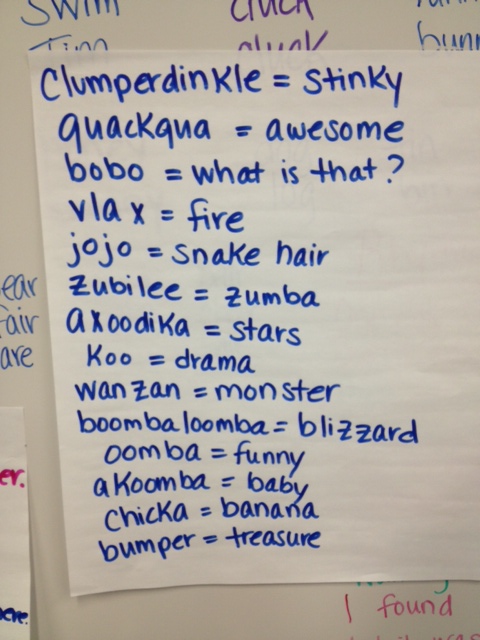 swim
cluck
Clumperdinkle = stinky
quackqua = awesome
bobo = what is that?
vlax = fire
jojo = snake hair
zubilee = zumba
axoodika = stars
koo = drama
wanzan = monster
boombaloomba = blizzard
oomba = funny
akoomba = baby
chicka = banana
bumper = treasure
I found